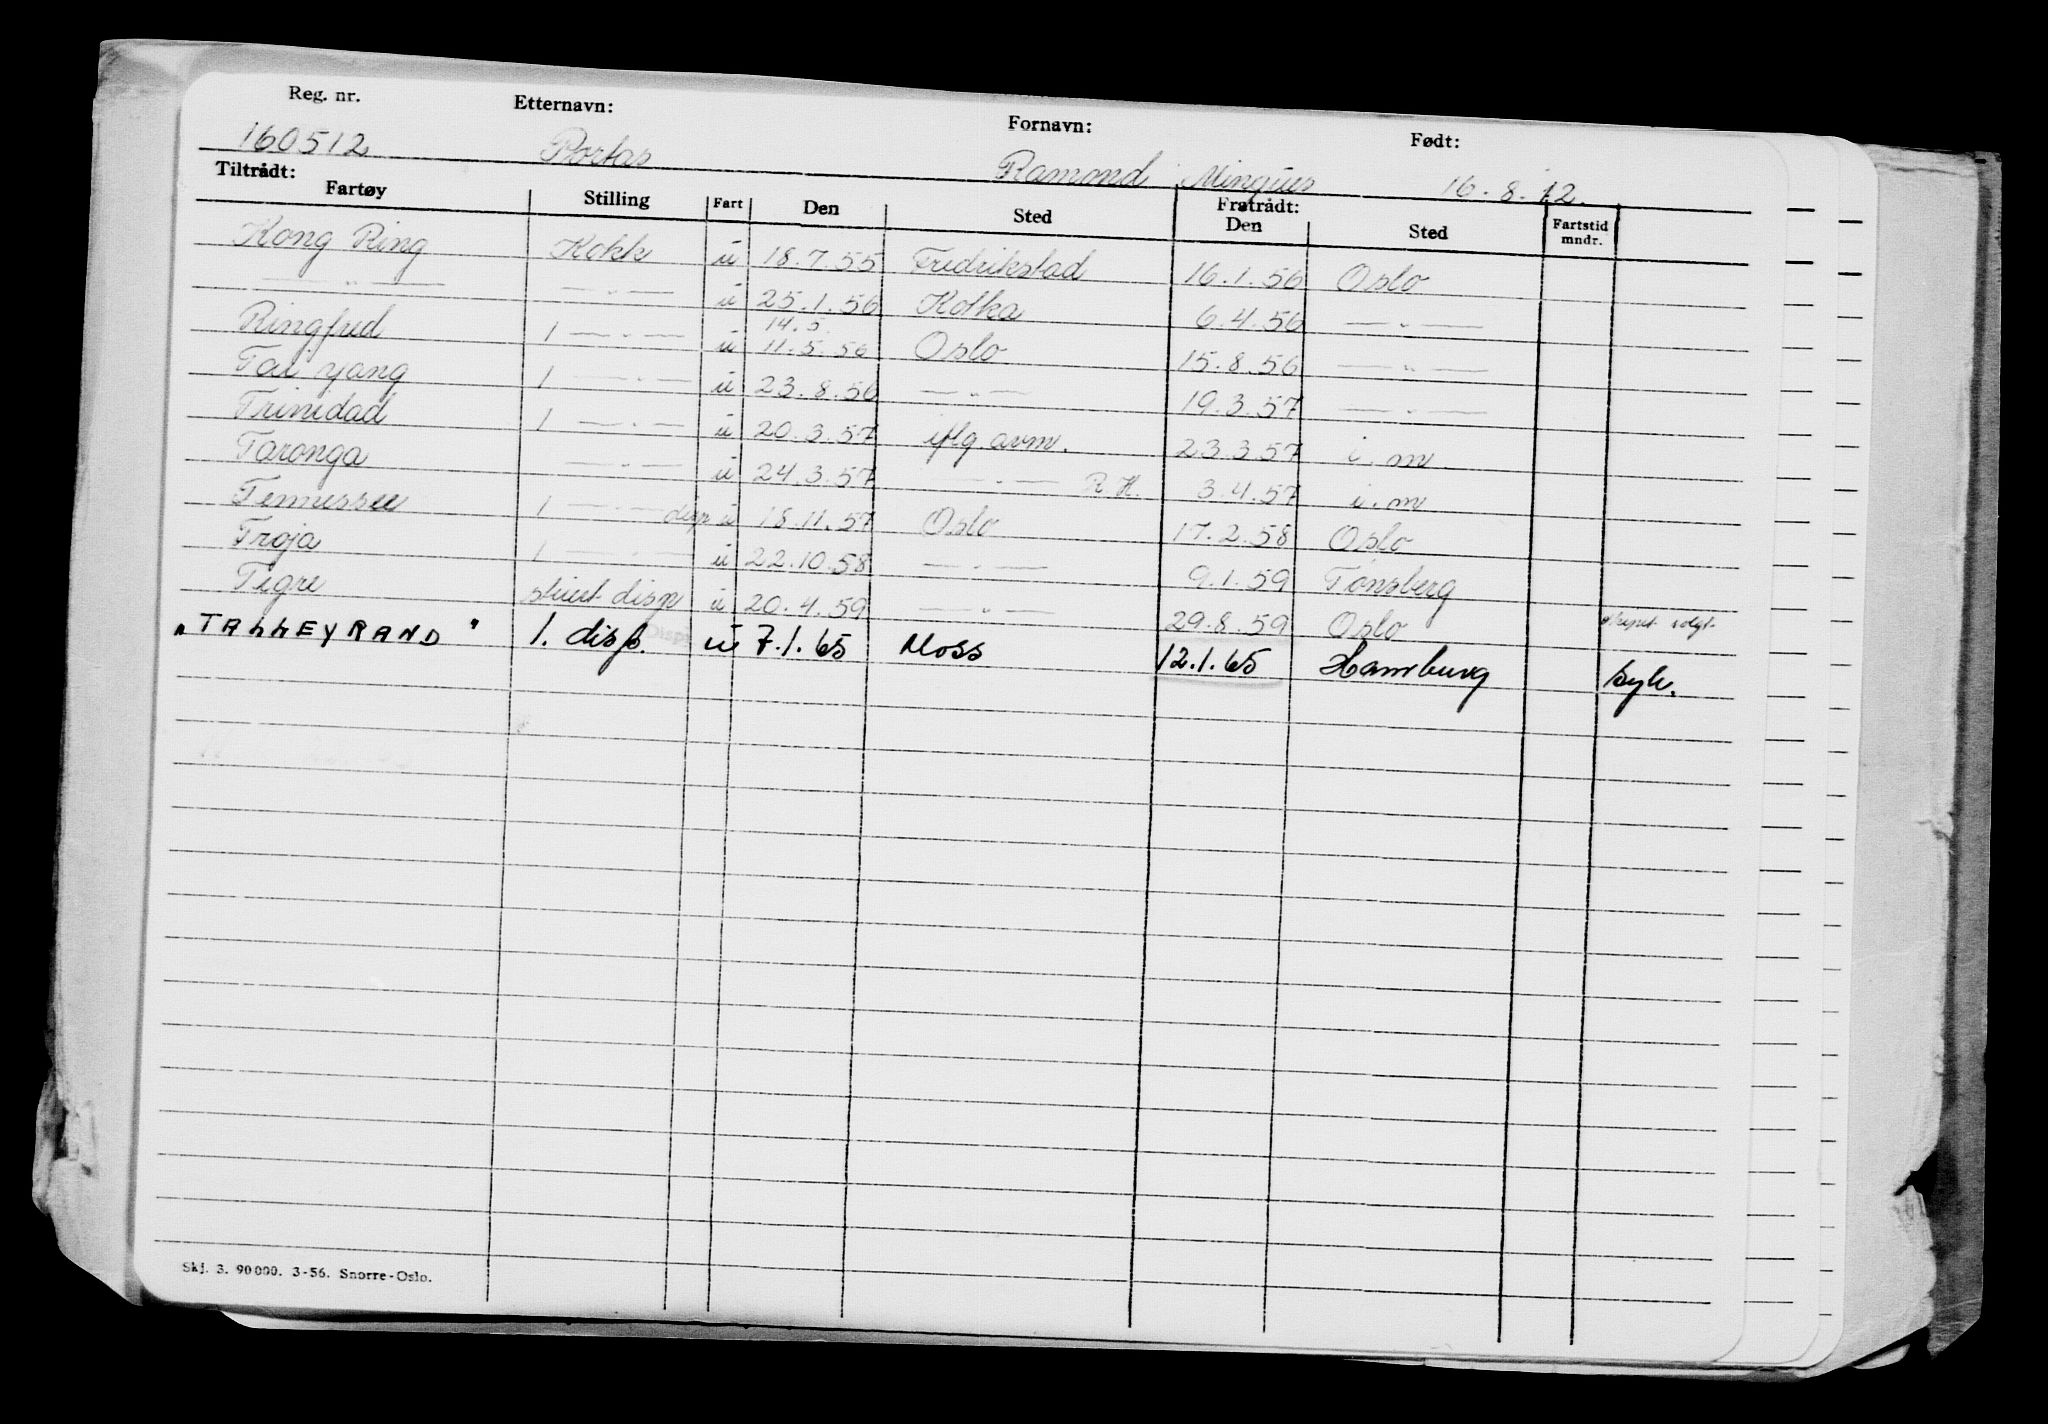 Reg. nr. Etternavn: Fornavn: Født:
160512 Portas Ramond Mingues 16.8.12.
Tiltrådt: Fratrådt:
Fartøy Stilling Fart Den Sted Den Sted Fartstid mndr.
Kong Ring Kokk u 18.7.55 Fredrikstad 16.1.56 Oslo
— " — — " — u 25.1.56 Kotka 6.4.56 — " —
14.5.
Ringfred 1 — " — u 11.5.56 Oslo 15.8.56 — " —
Tai yang 1 — " — u 23.8.56 — " — 19.3.57 — " —
Trinidad 1 — " — u 20.3.57 iflg avm. 23.3.57 i. m
Taronga — " — u 24.3.57 — " — R.H. 3.4.57 i. m
Tennessee 1 — " — disp u 18.11.57 Oslo 17.2.58 Oslo
Troja 1 — " — u 22.10.58 — " — 9.1.59 Tønsberg
Tigre stuert disp u 20.4.59 — " — 29.8.59 Oslo skipet solgt.
"TALLEYRAND" 1. disp. u 7.1.65 Moss 12.1.65 Hamburg syk.
Skj. 3. 90000. 3-56. Snorre-Oslo.